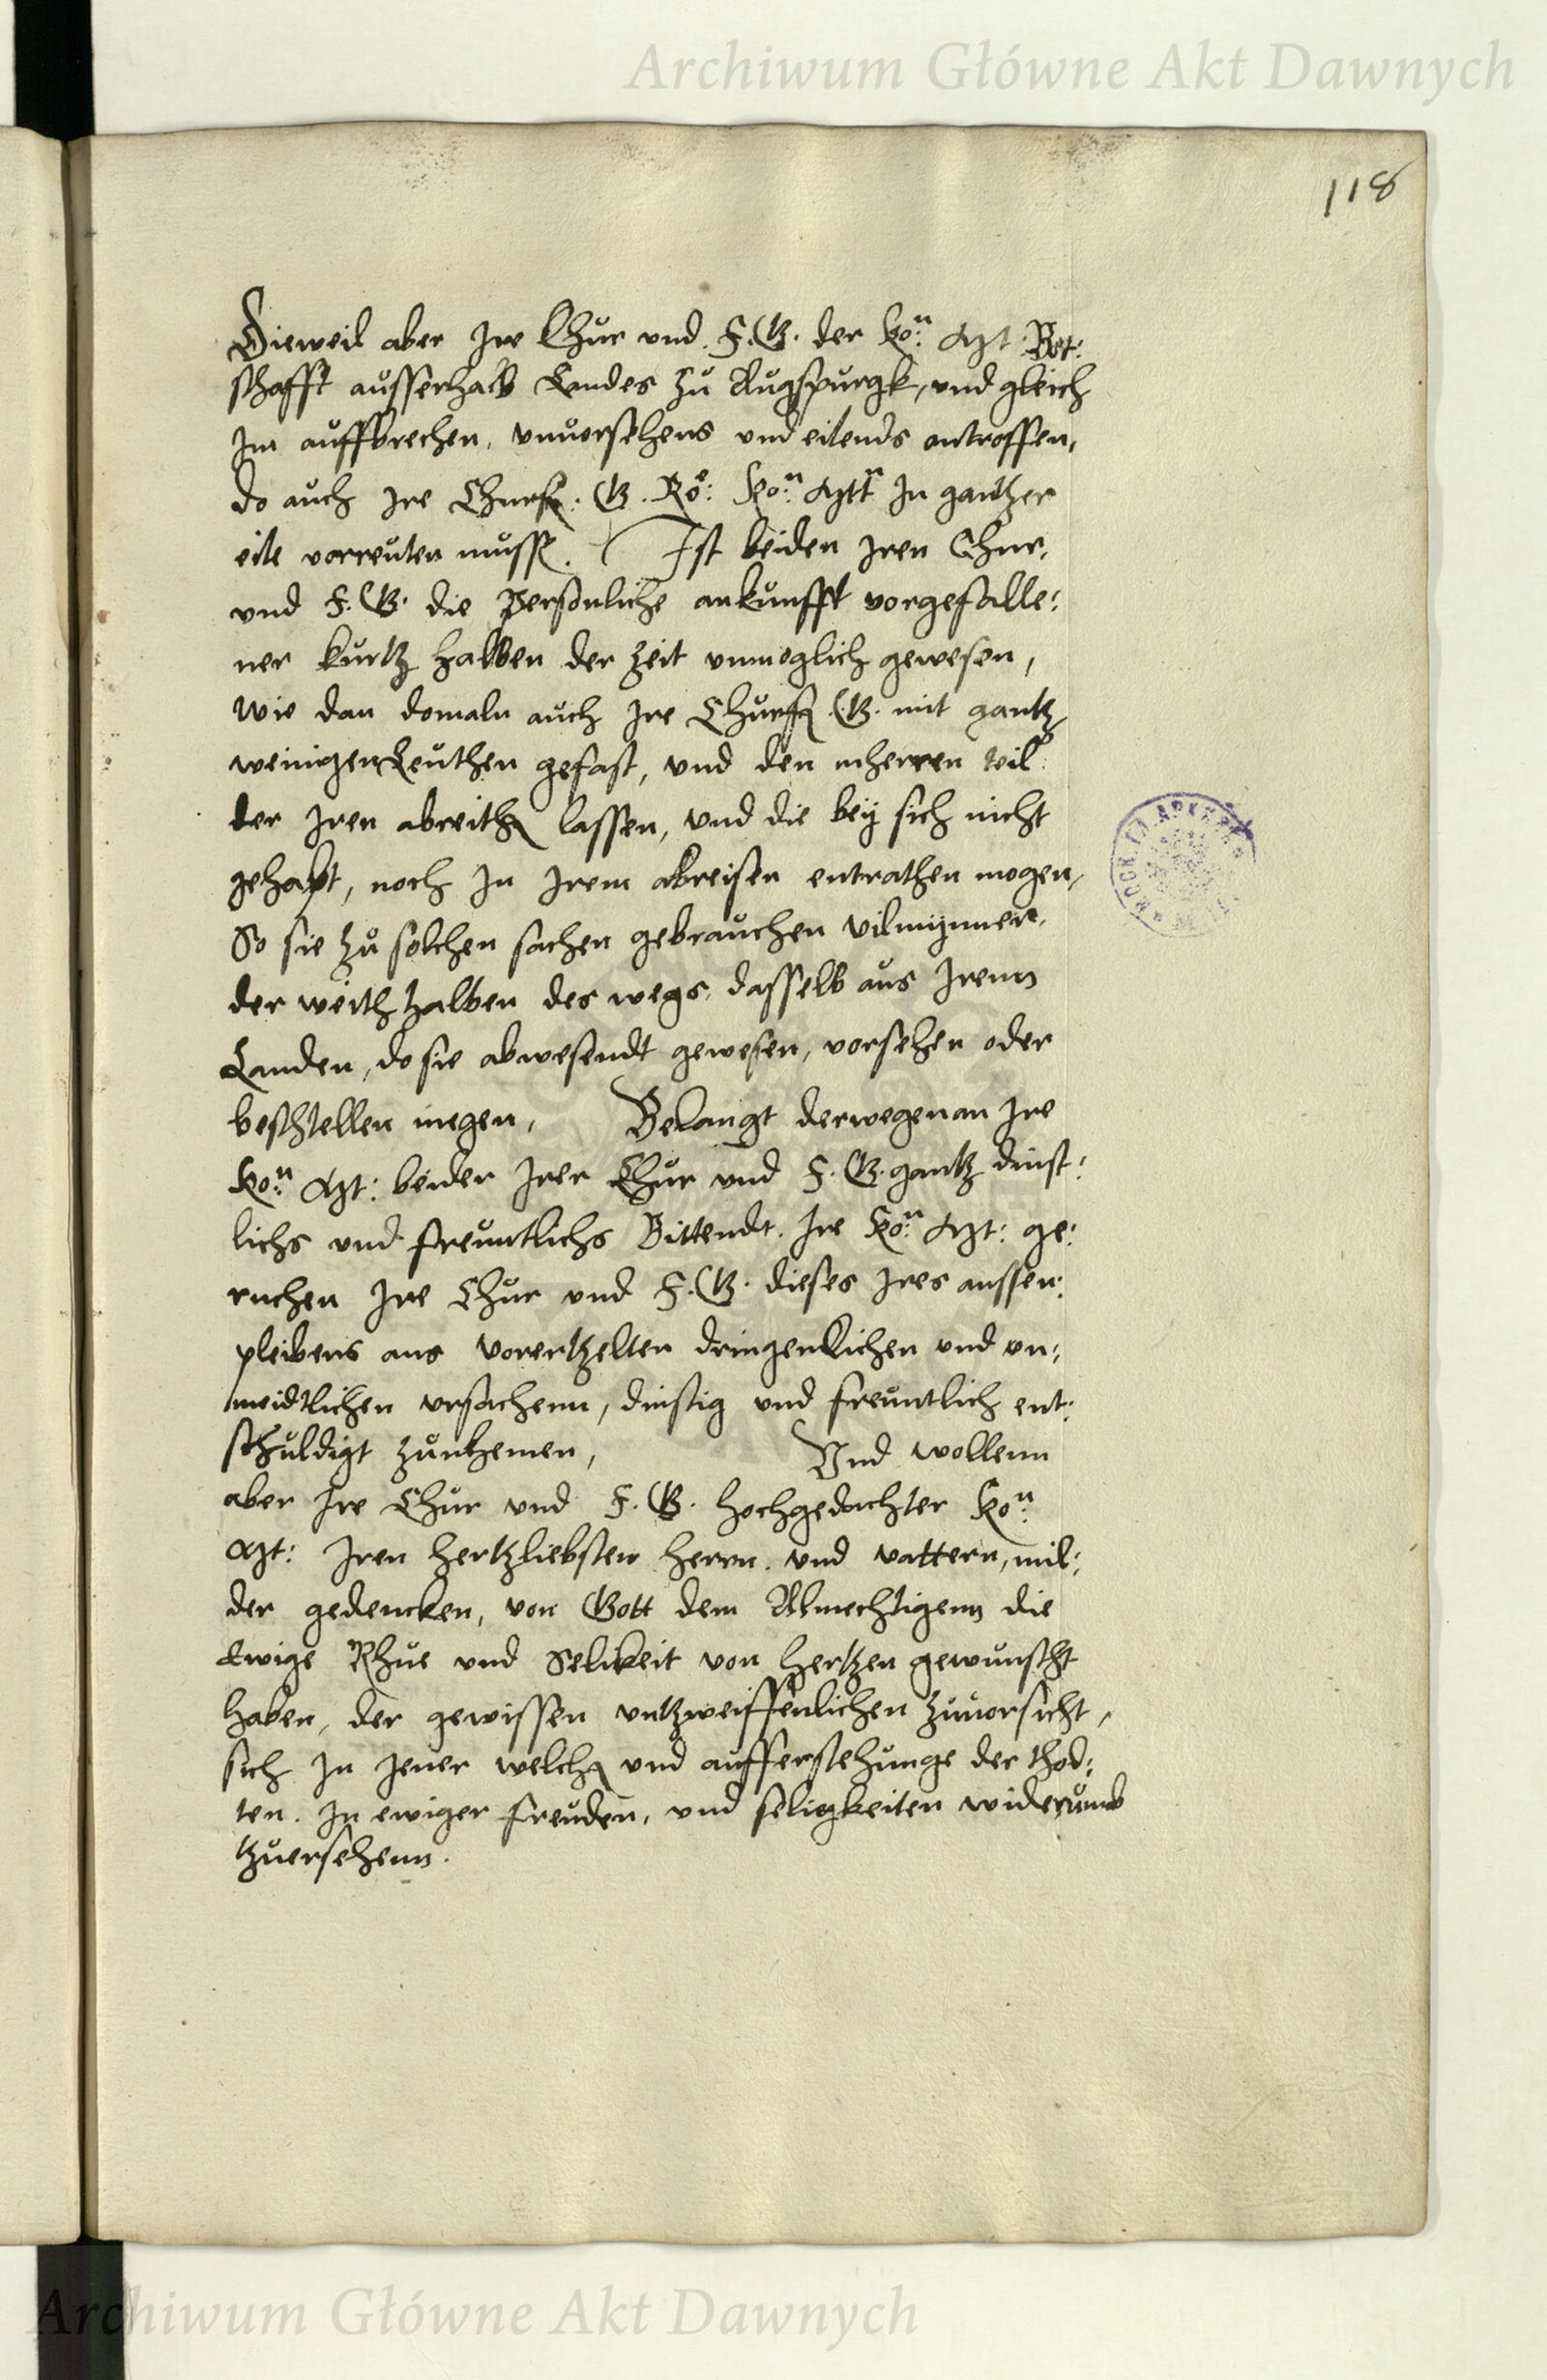 Archiwum Główne Akt Dawnych
118
Dieweil aber Ire Chur vnd F. G. der Ko:n Mt Bot:
schafft ausserhalb Landes zu Augspurgk, vnd gleich
Im auffbrechen, vnuorsehens vnd eilends antroffen,
do auch Ire Churf: G. Ro: Ko:n Mtt In gantzer
eile vorreuten musse. Ist beiden Iren Chur,
vnd F. G. die Personliche ankunfft vorgefalle:
ner kurtz halben der Zeit vnmoglich gewesen,
Wie dan domaln auch Ire Churf. G. mit gantz
weinigen Leuthen gefast, vnd den mherren teil
der Iren abreithen lassen, vnd die bey sich nicht
gehapt, noch In Irem abreisen entrathen mogen,
So sie zu solchen sachen gebrauchen vilmynner,
der weith halben des wegs, dasselb aus Irenn
Landen, do sie abwesendt gewesen, vorsehen oder
beschtellen megen, Belangt derwegen an Ire
Ko:n Mt: beider Irer Chur vnd F. G. gantz dinst:
lichs vnd freuntlichs Bittendt. Ire Ko:n Mt: ge:
ruchen Ire Chur vnd F. G. dieses Ires aussen:
pleibens aus vorertzelten dringenlichen vnd vn:
meidtlichen vrsachenn, dinstig vnd freuntlich ent:
schuldigt zunhemen, Vnd wollenn
aber Ire Chur vnd F. G. hochgedachter Ko:n
Mt: Iren hertzliebsten herrn. vnd vattern, mil:
der gedencken, von Gott dem Almechtigenn die
Ewige Rhue vnd Selikeit von hertzen gewunscht
haben, der gewissen vntzweiffenlichen zuuorsicht,
sich In Jener welth vnd aufferstehunge der thod:
ten. In ewiger freuden, vnd seligkeiten widerumb
tzuersehenn.
Archiwum Główne Akt Dawnych